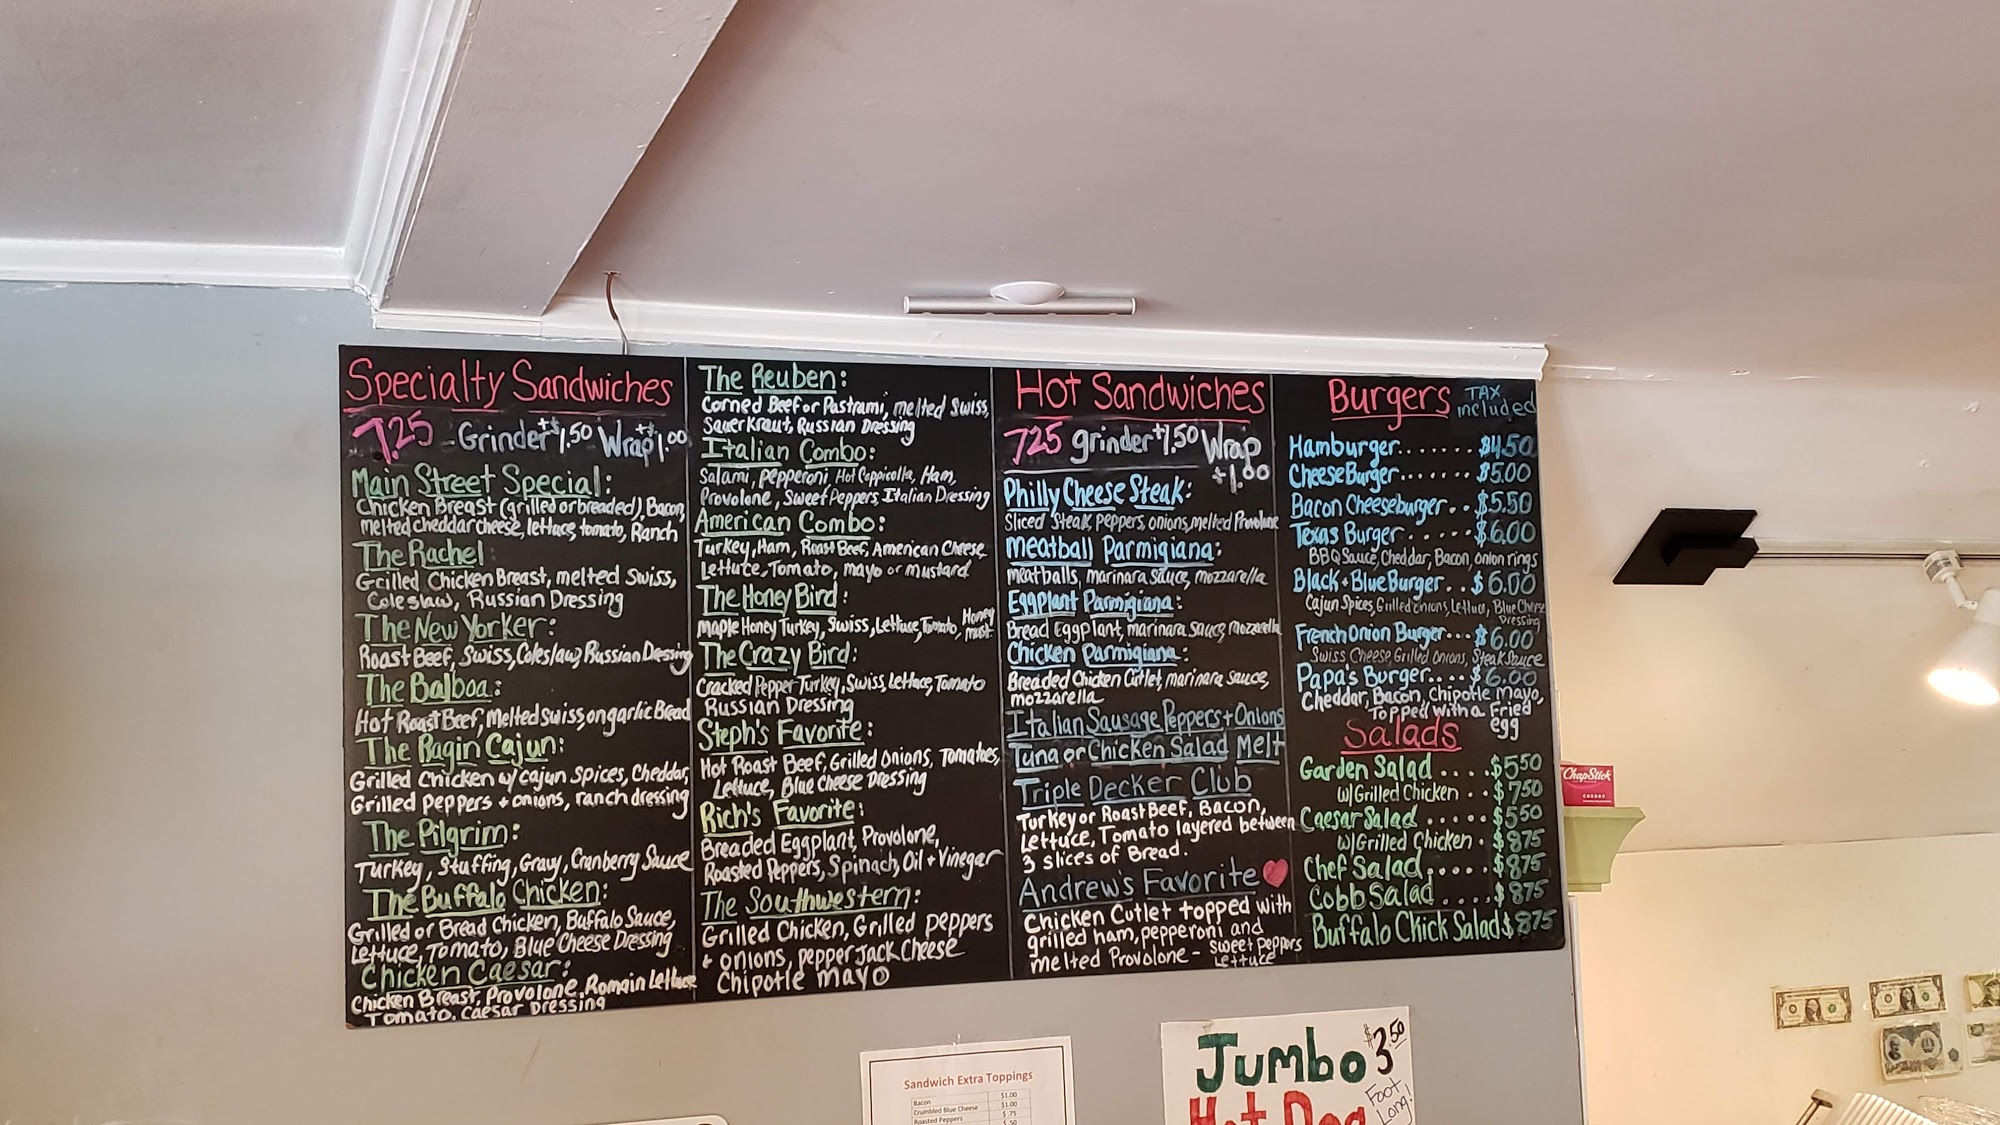 Specialty Sandwiches
7.25 - Grinder +$1.50 Wrap +$1.00
Main Street Special:
Chicken Breast (grilled or breaded), Bacon,
melted cheddar cheese, lettuce, tomato, Ranch
The Rachel:
Grilled Chicken Breast, melted Swiss,
Coleslaw, Russian Dressing
The New Yorker:
Roast Beef, Swiss, Coleslaw, Russian Dressing
The Balboa:
Hot Roast Beef, Melted Swiss, on garlic Bread
The Ragin Cajun:
Grilled Chicken w/ cajun spices, Cheddar,
Grilled peppers + onions, ranch dressing
The Pilgrim:
Turkey, Stuffing, Gravy, Cranberry Sauce
The Buffalo Chicken:
Grilled or Bread Chicken, Buffalo Sauce,
Lettuce, Tomato, Blue Cheese Dressing
Chicken Caesar:
Chicken Breast, Provolone, Romain Lettuce
Tomato, Caesar Dressing
The Reuben:
Corned Beef or Pastrami, melted Swiss,
Sauerkraut, Russian Dressing
Italian Combo:
Salami, pepperoni, Hot Cappicolla, Ham,
Provolone, Sweet Peppers, Italian Dressing
American Combo:
Turkey, Ham, Roast Beef, American Cheese
Lettuce, Tomato, mayo or mustard
The Honey Bird:
Maple Honey Turkey, Swiss, Lettuce, Tomato, Honey
must.
The Crazy Bird:
Cracked Pepper Turkey, Swiss, Lettuce, Tomato
Russian Dressing
Steph's Favorite:
Hot Roast Beef, Grilled Onions, Tomatoes,
Lettuce, Blue Cheese Dressing
Rich's Favorite:
Breaded Eggplant, Provolone,
Roasted Peppers, Spinach, Oil + Vinegar
The Southwestern:
Grilled Chicken, Grilled peppers
+ onions, pepper jack cheese
Chipotle mayo
Hot Sandwiches
725 grinder +1.50 Wrap
+1.00
Philly Cheese Steak:
Sliced Steak, peppers, onions, melted Provolone
Meatball Parmigiana:
Meatballs, marinara sauce, mozzarella
Eggplant Parmigiana:
Bread Eggplant, marinara sauce, mozzarella
Chicken Parmigiana:
Breaded Chicken Cutlet, marinara sauce,
mozzarella
Italian Sausage Peppers + Onions
Tuna or Chicken Salad Melt
Triple Decker Club
Turkey or Roast Beef, Bacon,
Lettuce, Tomato layered between
3 slices of Bread.
Andrew's Favorite
Chicken Cutlet topped with
grilled ham, pepperoni and
melted Provolone - Sweet peppers
Lettuce
Burgers TAX
included
Hamburger....... $4.50
CheeseBurger....... $5.00
Bacon Cheeseburger.. $5.50
Texas Burger...... $6.00
BBQ Sauce, Cheddar, Bacon, onion rings
Black + Blue Burger.. $6.00
Cajun Spices, Grilled onions, Lettuce, Blue Cheese
Dressing
French Onion Burger... $6.00
Swiss Cheese, Grilled onions, Steak Sauce
Papa's Burger.... $6.00
Cheddar, Bacon, Chipotle Mayo,
Topped with a Fried
egg
Salads
Garden Salad .... $550
w/ Grilled Chicken .. $750
Caesar Salad ..... $550
w/ Grilled Chicken . $875
Chef Salad..... $875
Cobb Salad .... $875
Buffalo Chick Salad $875
ChapStick
CHERRY
Sandwich Extra Toppings
Bacon $1.00
Crumbled Blue Cheese $1.00
Roasted Peppers $ .75
$ .50
Jumbo $3.50
Hot Dog Foot
Long!